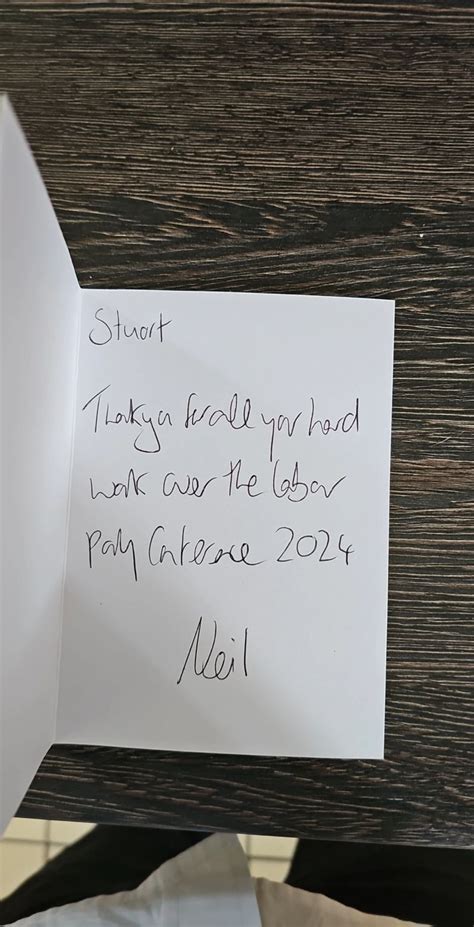 Stuart
Thank you for all your hard
work over the Labour
Party Conference 2024
Neil